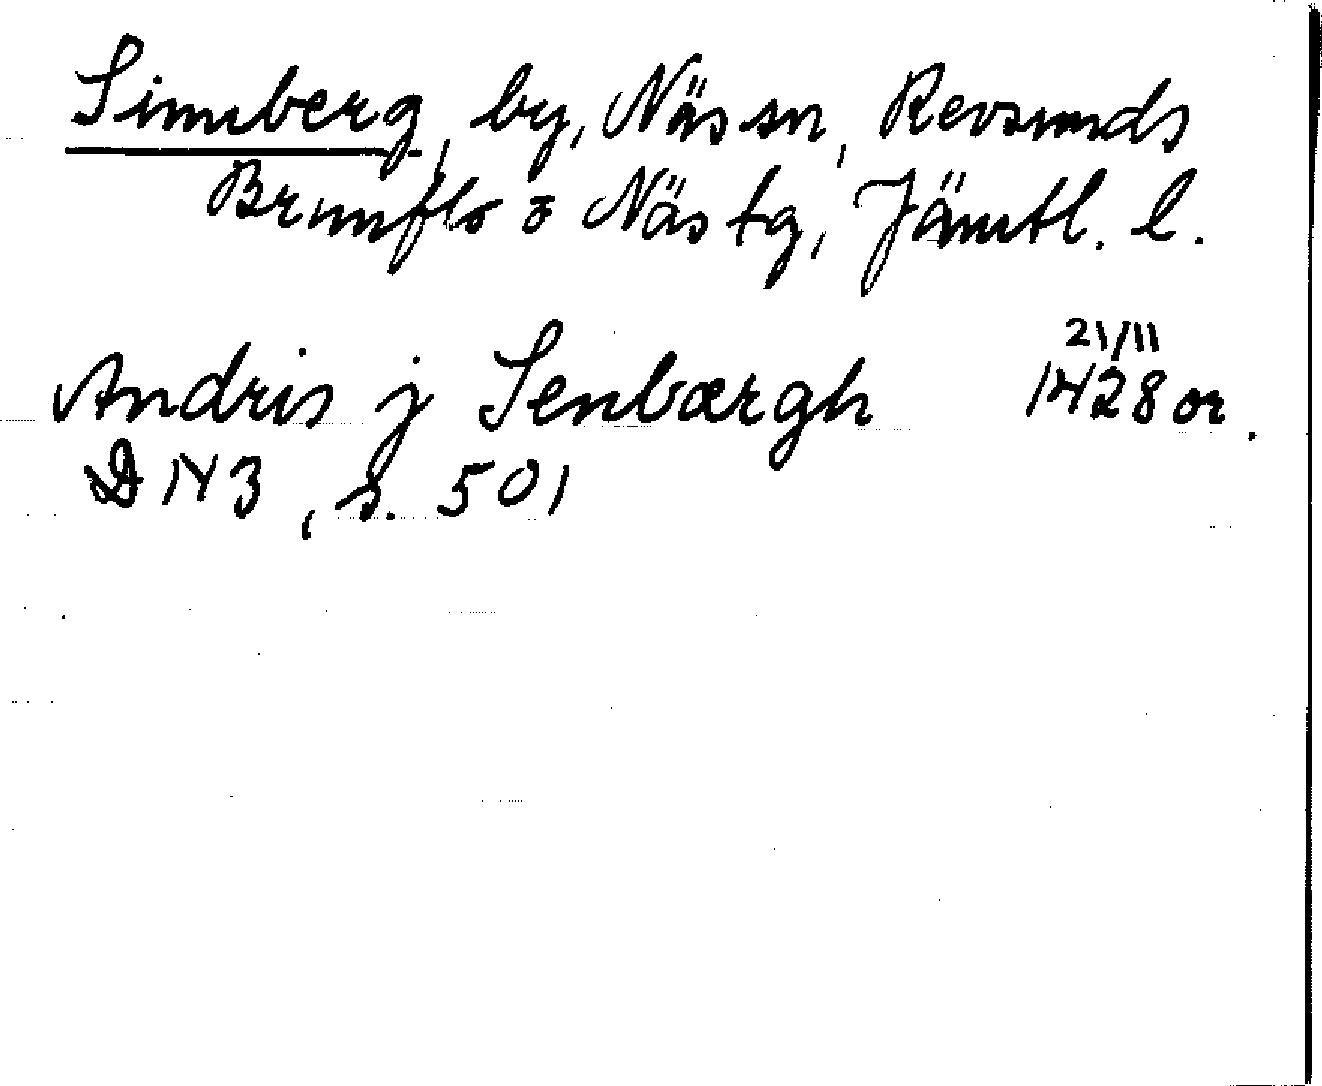 Sinnberg, by, Näs sn, Revsunds
Brunflo o Näs tg, Jämtl. l.
21/11
Andris j Senbærgh 1428 or.
D 143, s. 501